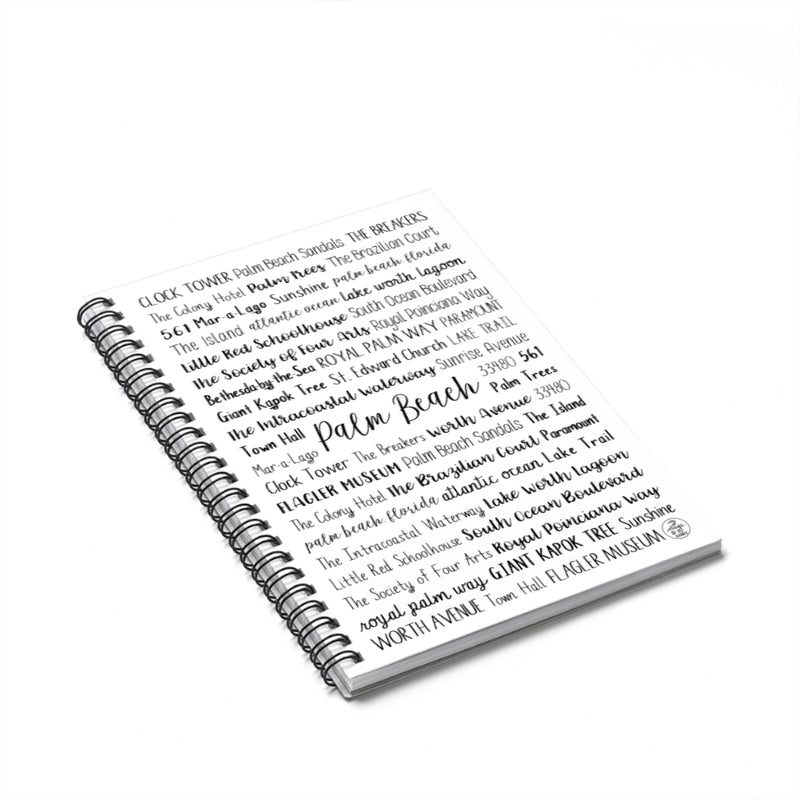 CLOCK TOWER Palm Beach Sandals THE BREAKERS
The Colony Hotel Palm Trees The Brazilian Court
561 Mar-a-Lago Sunshine palm beach florida
The Island atlantic ocean lake worth lagoon
Little Red Schoolhouse South Ocean Boulevard
The Society of Four Arts Royal Poinciana Way
Bethesda-by-the-Sea ROYAL PALM WAY PARAMOUNT
Giant Kapok Tree St. Edward Church LAKE TRAIL
The Intracoastal Waterway Sunrise Avenue
Town Hall Palm Beach 33480 561
Mar-a-Lago Palm Trees
Clock Tower The Breakers Worth Avenue 33480
FLAGLER MUSEUM Palm Beach Sandals The Island
The Colony Hotel The Brazilian Court Paramount
palm beach florida atlantic ocean Lake Trail
The Intracoastal Waterway lake worth lagoon
Little Red Schoolhouse South Ocean Boulevard
The Society of Four Arts Royal Poinciana Way
royal palm way GIANT KAPOK TREE Sunshine
WORTH AVENUE Town Hall FLAGLER MUSEUM